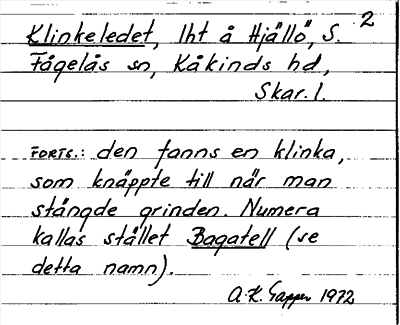 2
Klinkeledet, lht å Hjällö, S.
Fågelås sn, Kåkinds hd,
Skar. l.
FORTS.: den fanns en klinka,
som knäppte till när man
stängde grinden. Numera
kallas stället Bagatell (se
detta namn).
A.-K. 1972